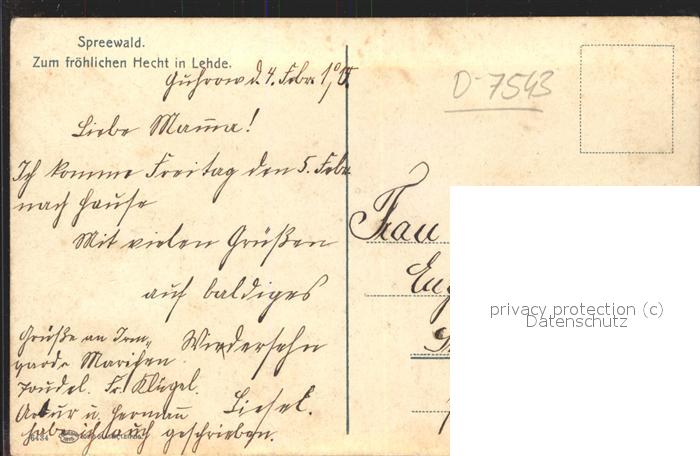 Spreewald.
Zum fröhlichen Hecht in Lehde.
Guhrow d. 4. Febr.
D-7543
Liebe Mama!
Ich komme Freitag den 5. Febr.
nach Hause
Mit vielen Grüßen
auf baldiges
Wiedersehn
Liesel.
Grüße an Irm-
gard
Fr. Klügel.
Artur u. Hermann
habe ich auch geschrieben.
Frau
privacy protection (c)
Datenschutz